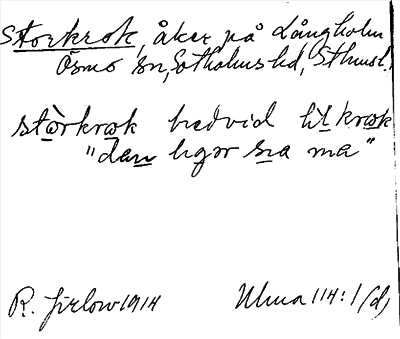 Storkrok, åker på Långholm
Ösmo sn, Sotholms hd, Sthmsl.
stòrkrok bredvid lilkrok
"dan ligər sna ma"
R. Jirlow 1914 Ulma 114:1 (d)